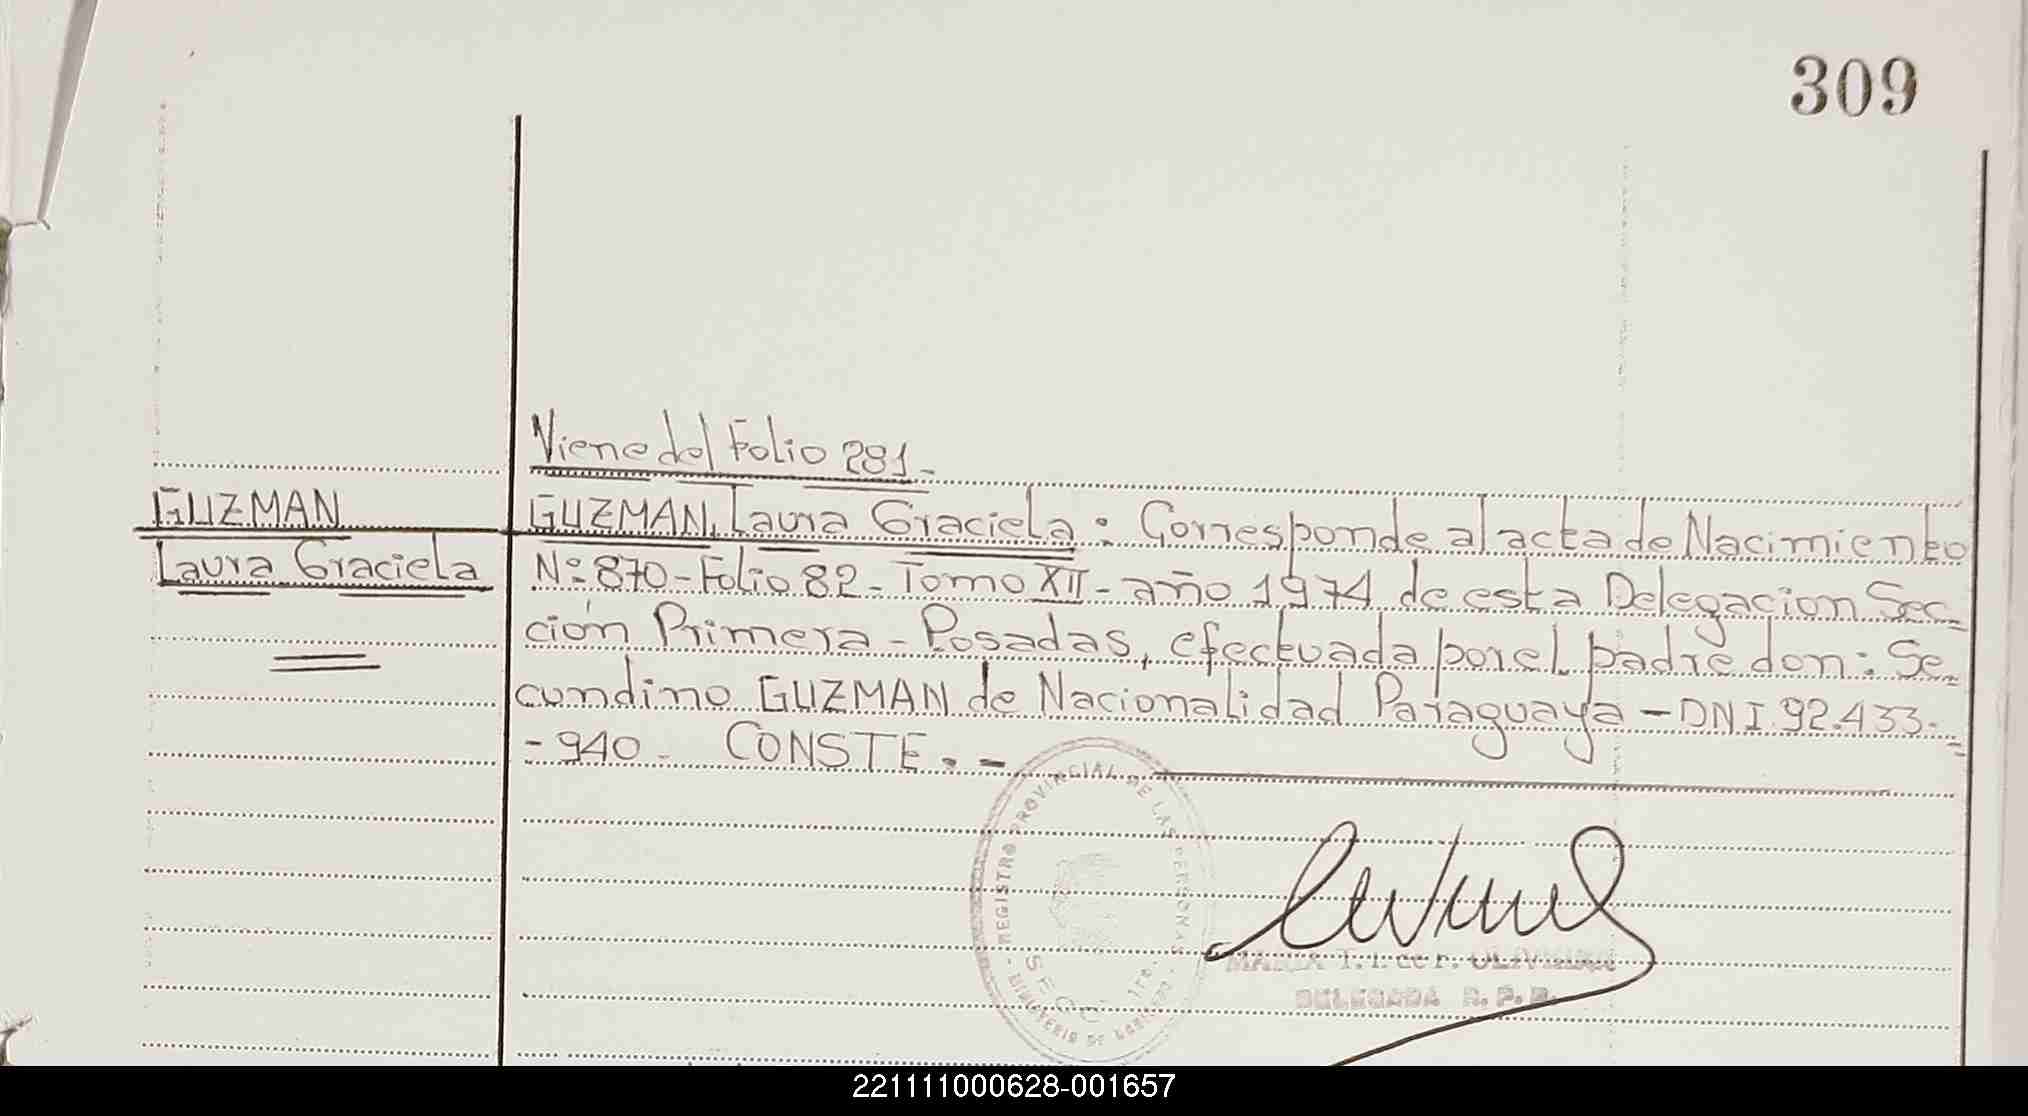 309
Viene del Folio 281.-
GUZMAN
Laura Graciela
GUZMAN, Laura Graciela: Corresponde al acta de Nacimiento
Nº 870-Folio 82-Tomo XII-año 1974 de esta Delegacion Sec=
ción Primera-Posadas, efectuada por el padre don: Se=
cundino GUZMAN de Nacionalidad Paraguaya-DNI.92.433-
-940- CONSTE.-
REGISTRO PROVINCIAL DE LAS PERSONAS
SECC. 1ra.
MARIA T. I. de P. OLIVEIRA
DELEGADA R. P. P.
221111000628-001657